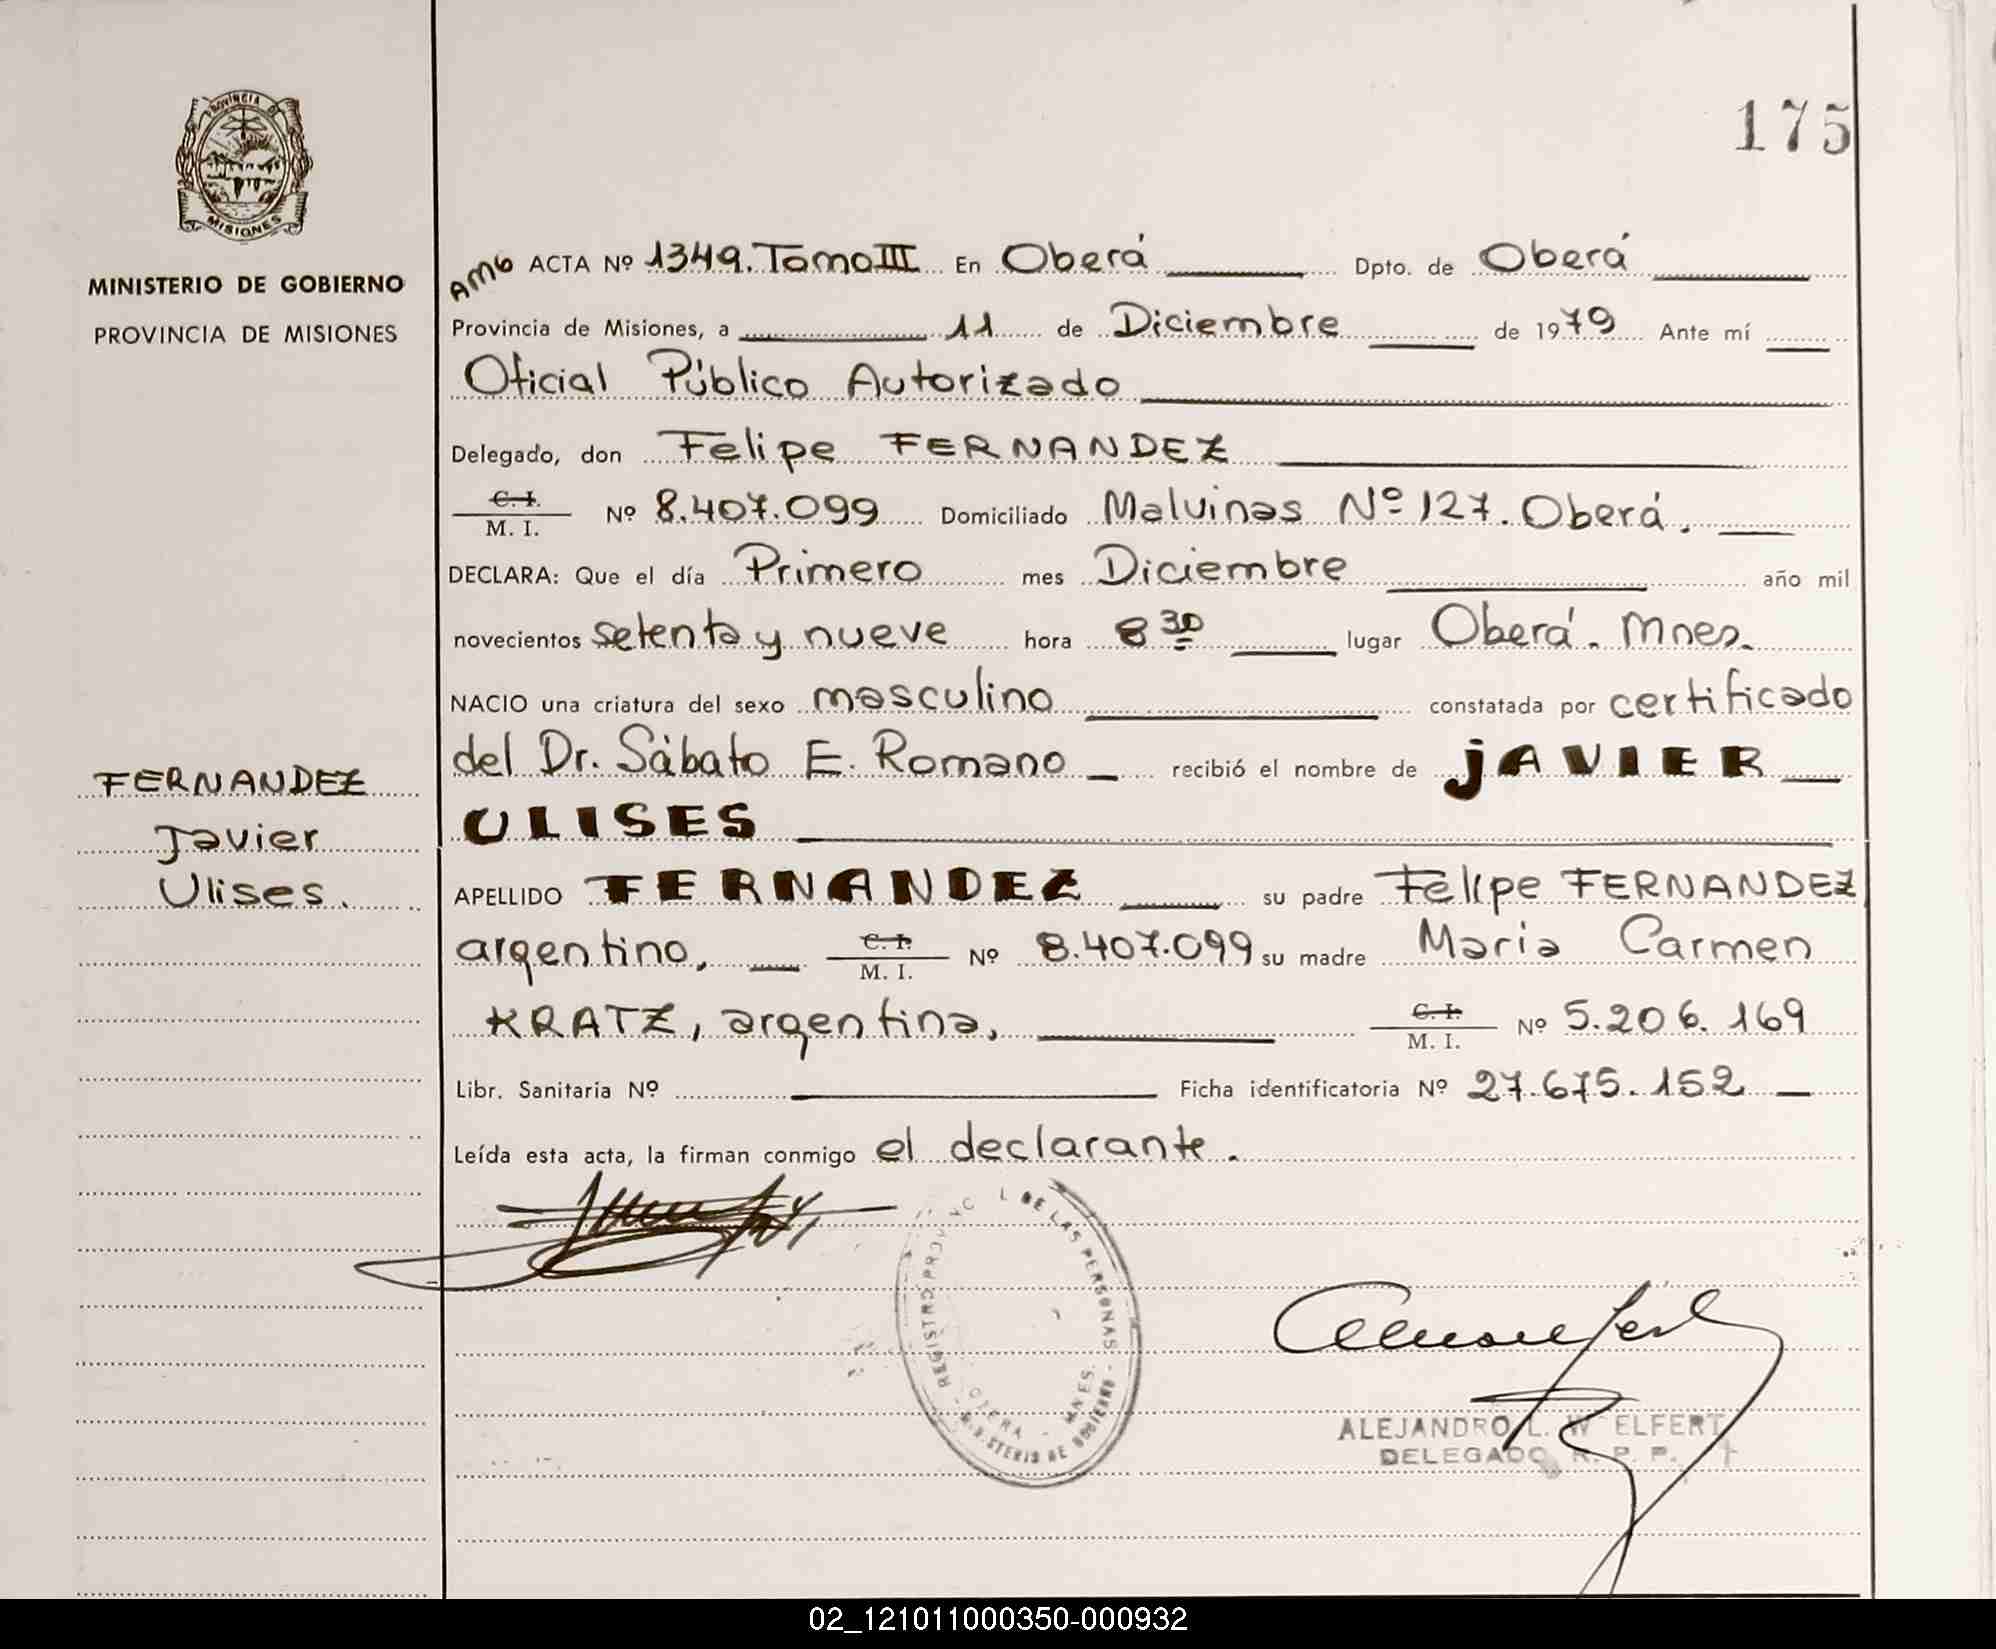 PROVINCIA DE
MISIONES
MINISTERIO DE GOBIERNO
PROVINCIA DE MISIONES
FERNANDEZ
Javier
Ulises.
175
AMG ACTA Nº 1349. Tomo III En Oberá Dpto. de Oberá
Provincia de Misiones, a 11 de Diciembre de 1979 Ante mí
Oficial Público Autorizado
Delegado, don Felipe FERNANDEZ
C. I.
M. I. Nº 8.407.099 Domiciliado Malvinas Nº 127. Oberá.
DECLARA: Que el día Primero mes Diciembre año mil
novecientos setenta y nueve hora 8 30 lugar Oberá. Mnes.
NACIO una criatura del sexo masculino constatada por certificado
del Dr. Sábato E. Romano recibió el nombre de JAVIER
ULISES
APELLIDO FERNANDEZ su padre Felipe FERNANDEZ
argentino, C. I.
M. I. Nº 8.407.099 su madre Maria Carmen
KRATZ, argentina, C. I.
M. I. Nº 5.206.169
Libr. Sanitaria Nº Ficha identificatoria Nº 27.675.152
Leída esta acta, la firman conmigo el declarante.
REGISTRO PROVINC L DE LAS PERSONAS
OBERA - MNES.
M.STERIO DE GOBIERNO
ALEJANDRO L. W ELFERT
DELEGADO R. P. P.
02_121011000350-000932